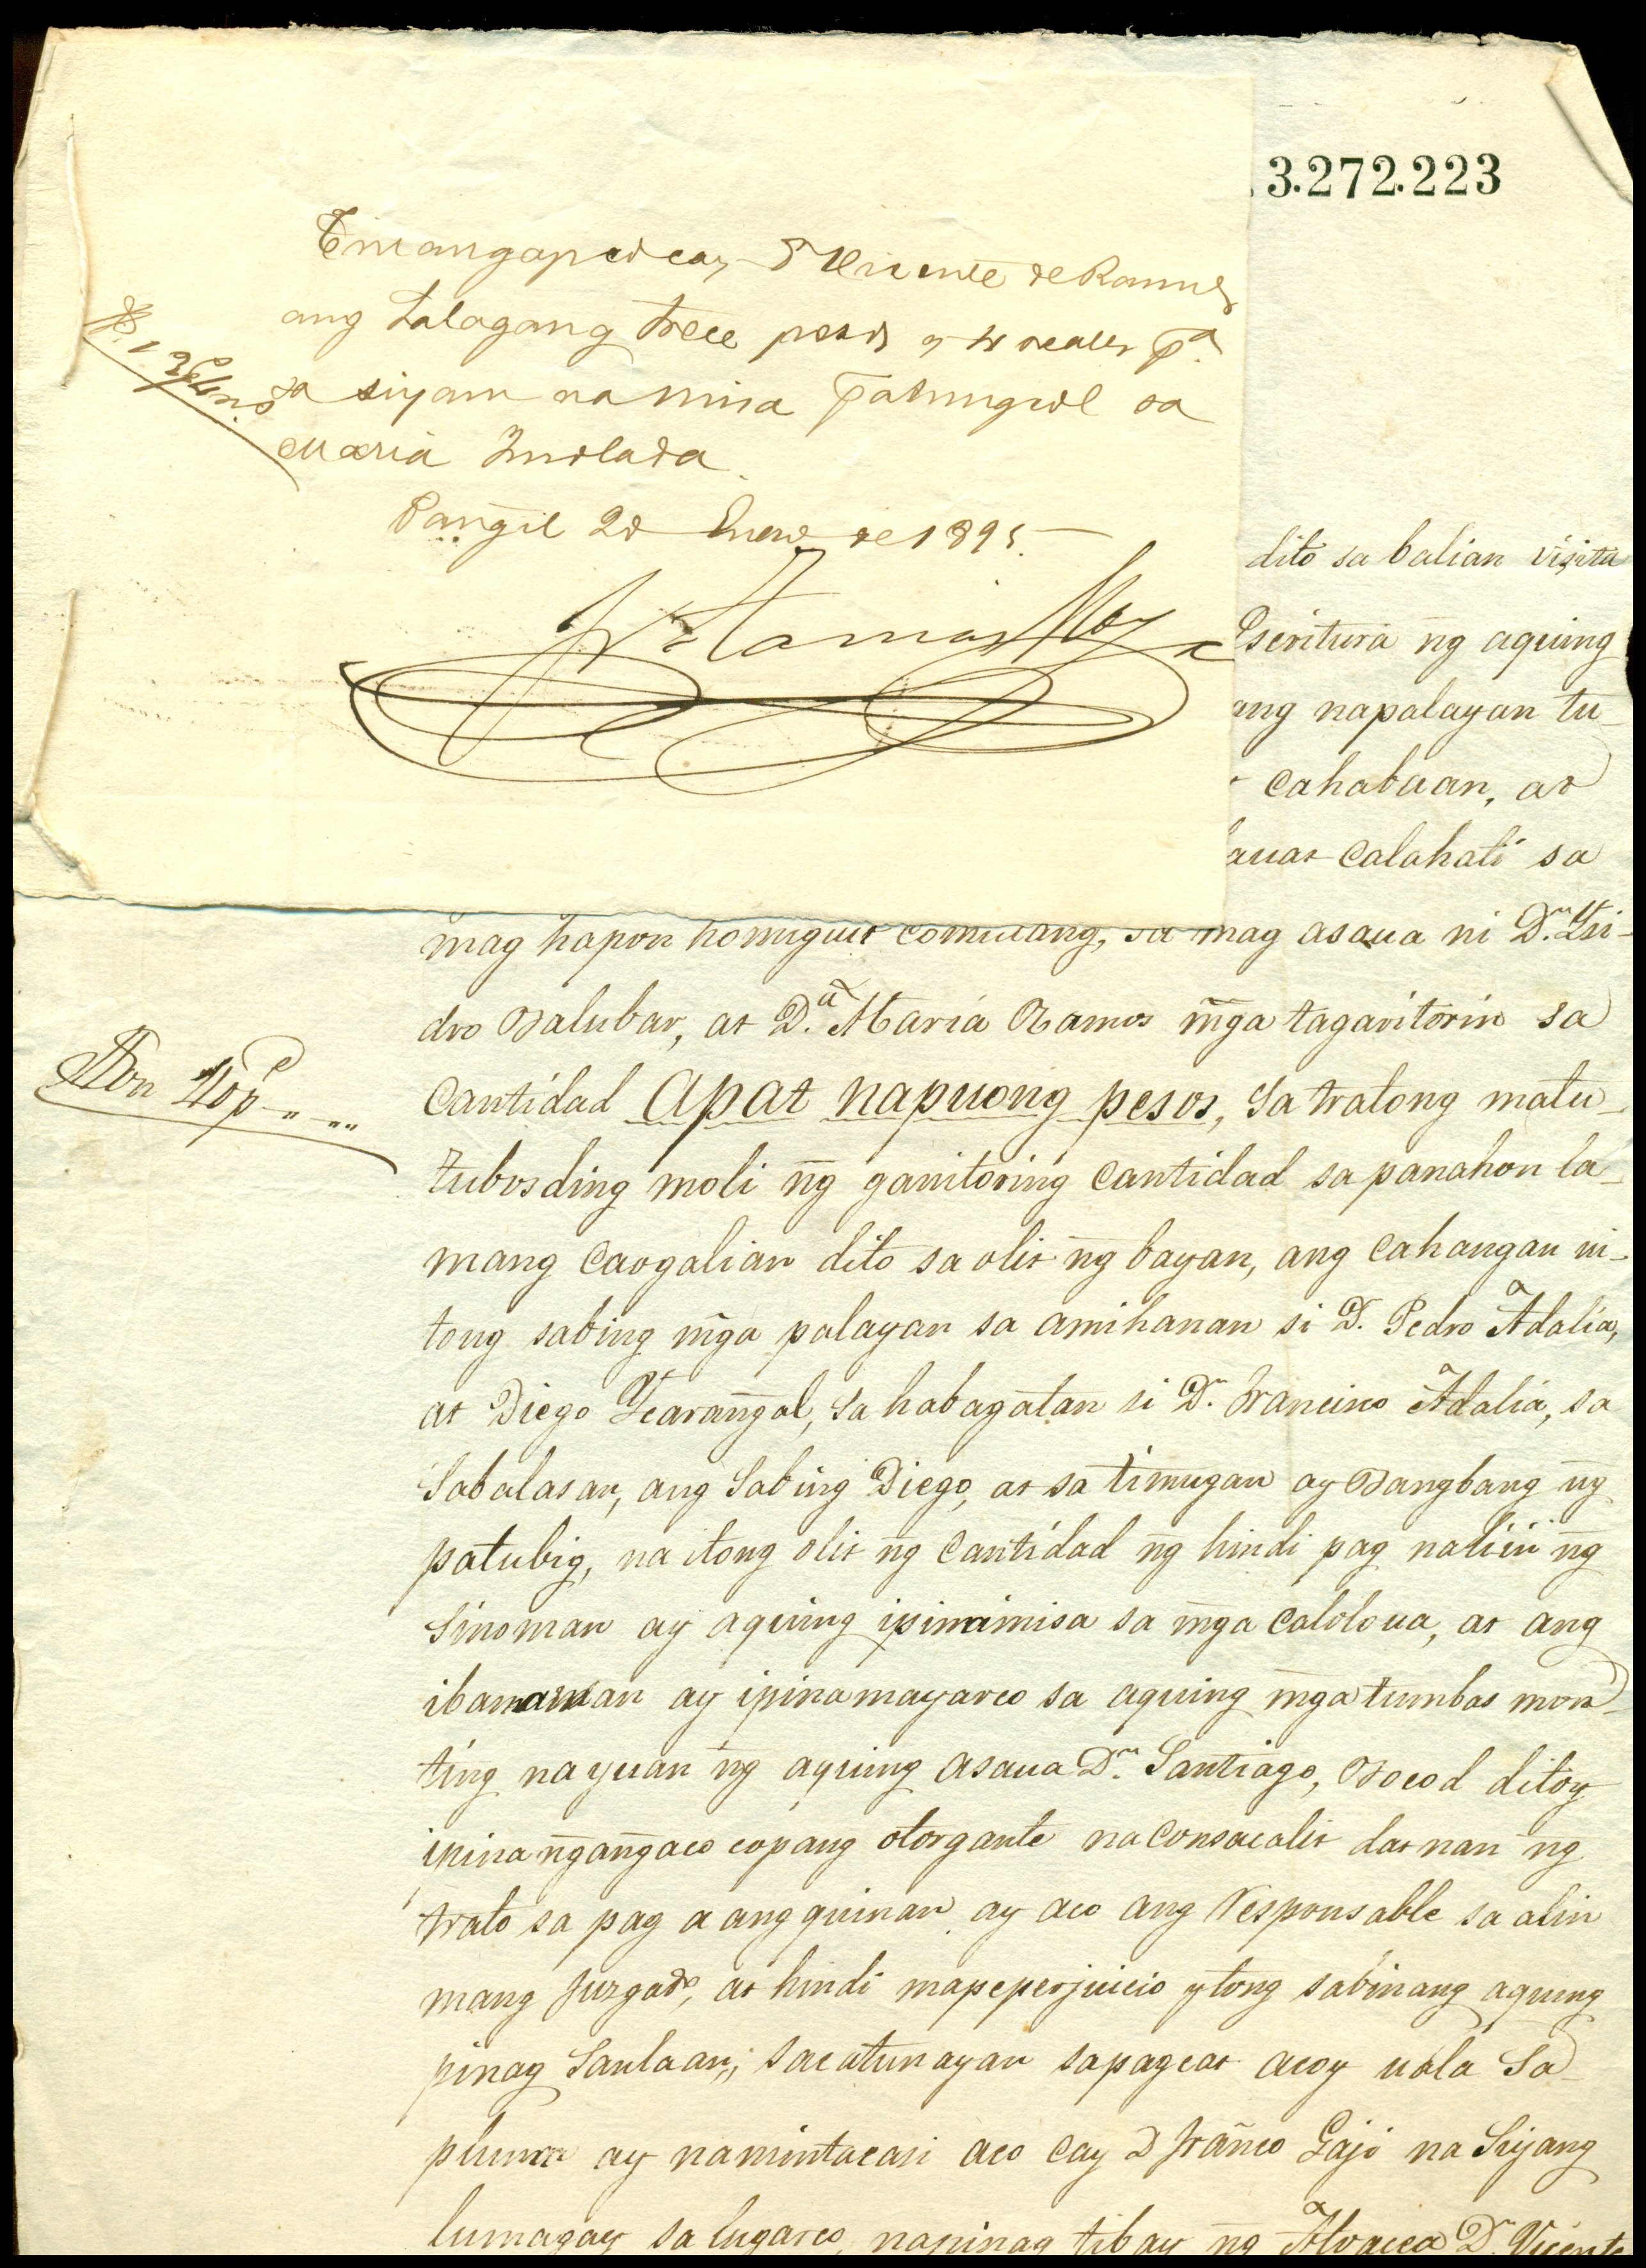 3.272.223
Tinangap co cay Dn Vicente de Ramos
ang halagang trece pesos y 4 reales pa.
sa siyam na misa patungcol sa
Maria Indlada.
Pangil 20 Enero de 1895.
dito sa balian visita
Escritura ng aquing
ang napalayan tu-
cahabaan, at
calahati sa
mag hapon homiguit comulang, sa mag asaua ni Dn. Ysi-
dro Balubar, at Da. Maria Ramos mga tagaritorin sa
Cantidad Apat napuong pesos, sa tratong matu-
tubosding moli ng ganitoring Cantidad sa panahon la-
mang Caogalian dito sa olit ng bayan, ang Cahangan ni-
tong sabing mga palayan sa amihanan si D. Pedro Adalia,
at Diego Icarangal, sa habagatan si Dn. Francisco Adalia, sa
Sabalasan, ang Sabing Diego, at sa timugan ay Bangbang ng
patubig, na itong olit ng Cantidad ng hindi pag naliin ng
sinoman ay aquing ipinimisa sa mga caloloua, at ang
ibanaman ay ipinamayarco sa aquing mga tumbas mon-
ting na yuan ng aquing asaua Dn. Santiago, Bocod ditoy
ipinangangaco copang otorgante na consacalit datnan ng
trato sa pag a angquinan ay aco ang Responsable sa alin
mang Juzgado, at hindi mapeperjuicio ytong sabinang aquing
pinag Sanlaan; sacatunayan sapagcat acoy uala Sa
pluma ay namintacasi aco cay D Franco Gaji na Siyang
lumagay sa lugarco, napinag tibay ng Alvacea Dn Vicente
Son 40 p